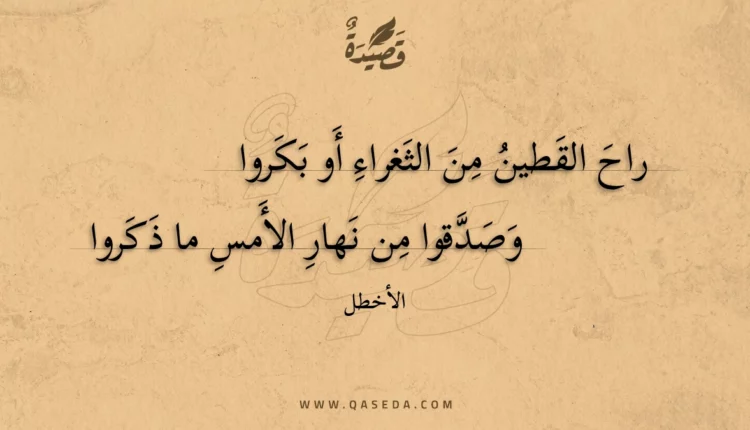 قَصِيدَةٌ
راحَ القَطينُ مِنَ الثَغراءِ أَو بَكَروا
وَصَدَّقوا مِن نَهارِ الأَمسِ ما ذَكَروا
الأخطل
WWW.QASEDA.COM